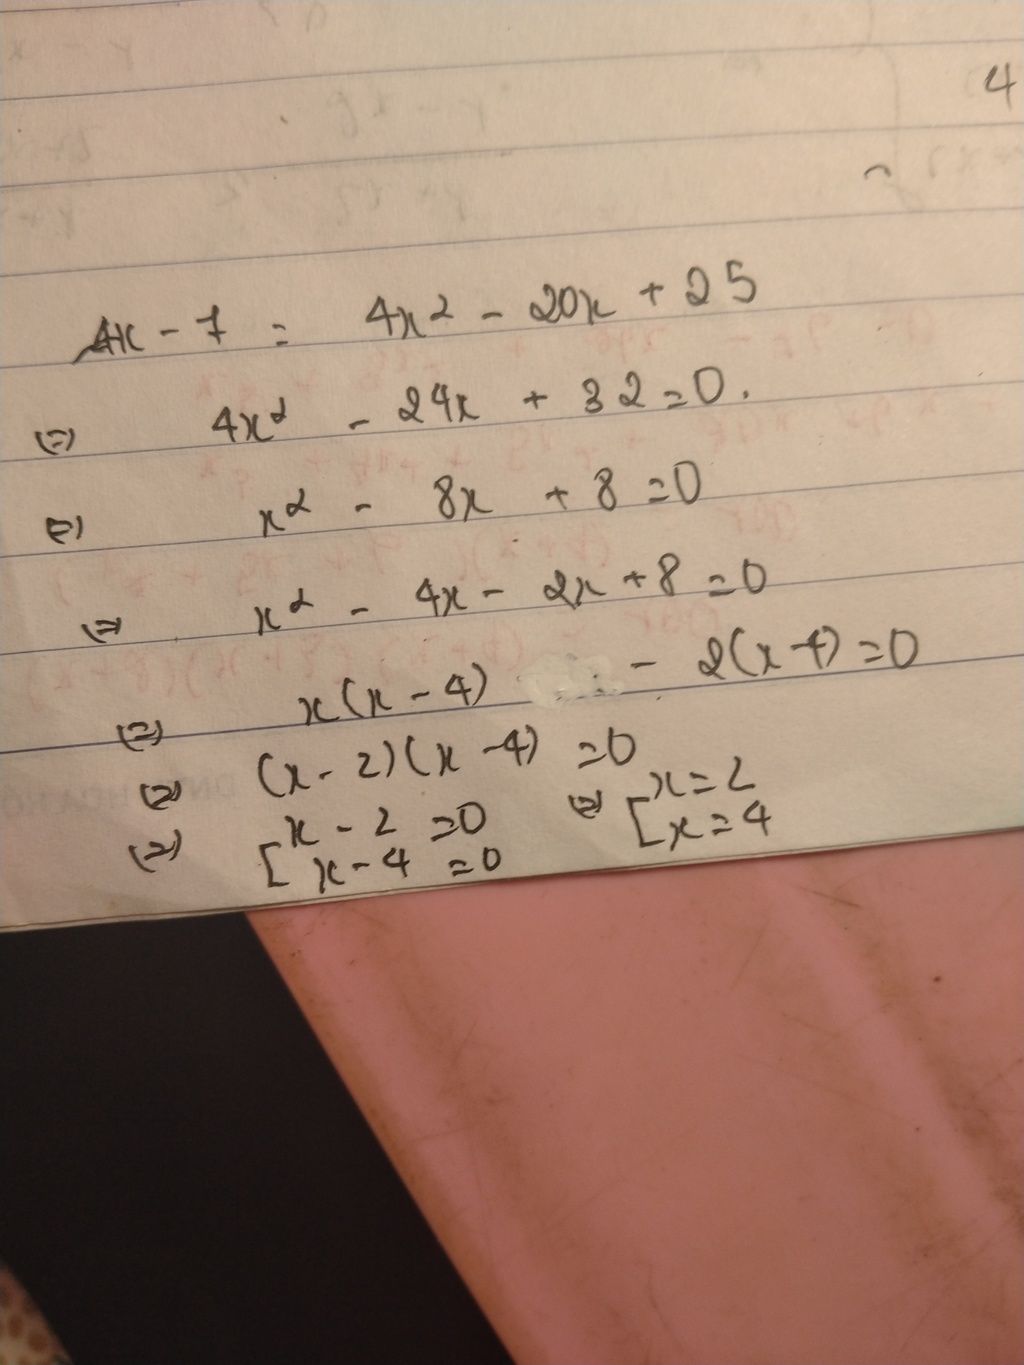 4
4x - 7 = 4x² - 20x + 25
(=) 4x² - 24x + 32 = 0.
(=) x² - 8x + 8 = 0
(=) x² - 4x - 2x + 8 = 0
(=) x(x - 4) - 2(x - 4) = 0
(=) (x - 2)(x - 4) = 0
(=) [x - 2 = 0 (=) [x = 2
x - 4 = 0 x = 4